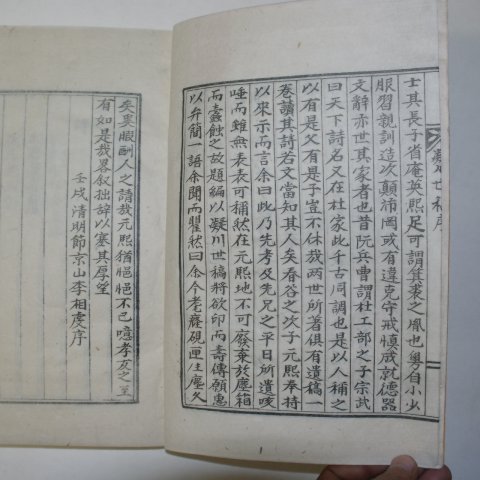 凝川世稿序
士其長子省庵英熙足可謂箕裘之胤也粤自小少
服習親訓造次顛沛罔或有違克守戒愼成就德器
文辭亦世其家者也昔阮兵曹謂杜工部之子宗武
曰天下詩名又在杜家此千古同調也是以人稱之
以有是父有是子豈不休哉兩世所著俱有遺稿一
卷讀其詩若文當知其人矣春谷之次子元熙奉持
以來示而言余曰此乃先考及先兄之平日所遺咳
唾而雖無表表可稱然在元熙地不可廢棄故塵箱
而蠹蝕之故題編以凝川世稿將欲印而壽傳願惠
以弁簡一語余聞而瞿然曰余今老癃硯匣生塵久
矣奚暇酬人之請哉元熙猶慥慥不已噫孝友之
有如是哉畧敘拙辭以塞其厚望
壬戌清明節京山李相虔序